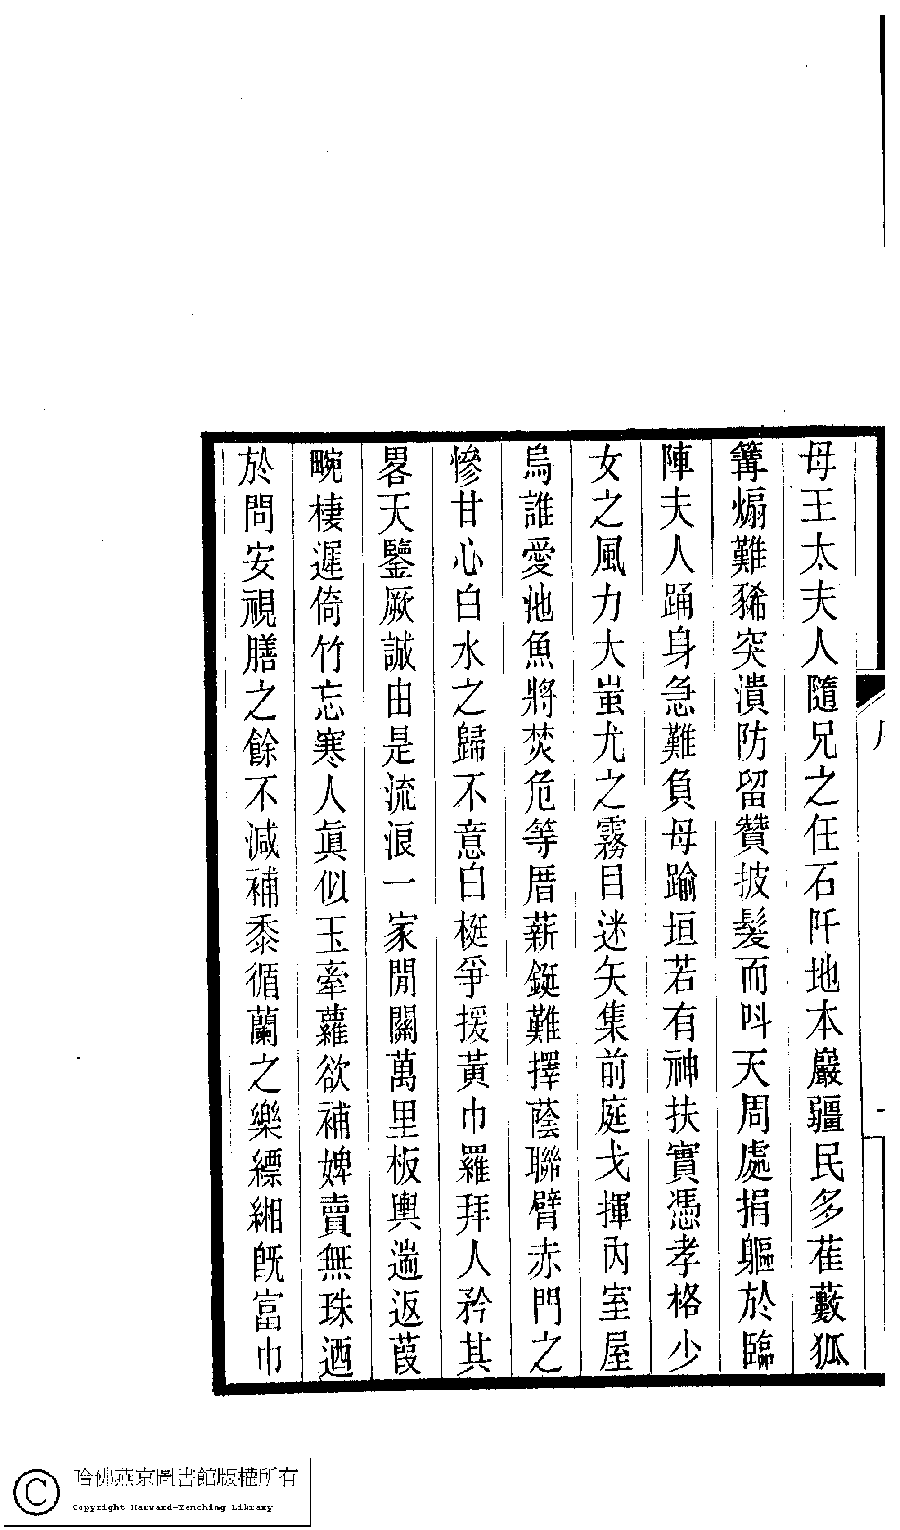 母王太夫人隨兄之任石阡地本巖疆民多萑藪狐
篝煽難豨突潰防留贊披髮而呌天周處捐軀於臨
陣夫人踊身急難負母踰垣若有神扶實憑孝格少
女之風力大蚩尤之霧目迷矢集前庭戈揮內室屋
烏誰愛池魚將焚危等厝薪鋌難擇蔭聯臂赤門之
慘甘心白水之歸不意白梃爭援黃巾羅拜人矜其
畧天鑒厥誠由是流浪一家閒關萬里板輿遄返葭
畹棲遲倚竹忘寒人眞似玉牽蘿欲補婢賣無珠迺
於問安視膳之餘不減補黍循蘭之樂縹緗旣富巾
哈佛燕京圖書館版權所有
Copyright Harvard-Yenching Library